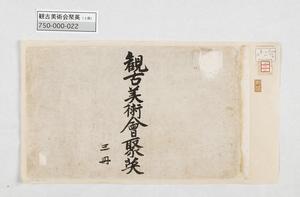 観古美術会聚英（上冊）
750-000-022
観古美術會聚英
三冊